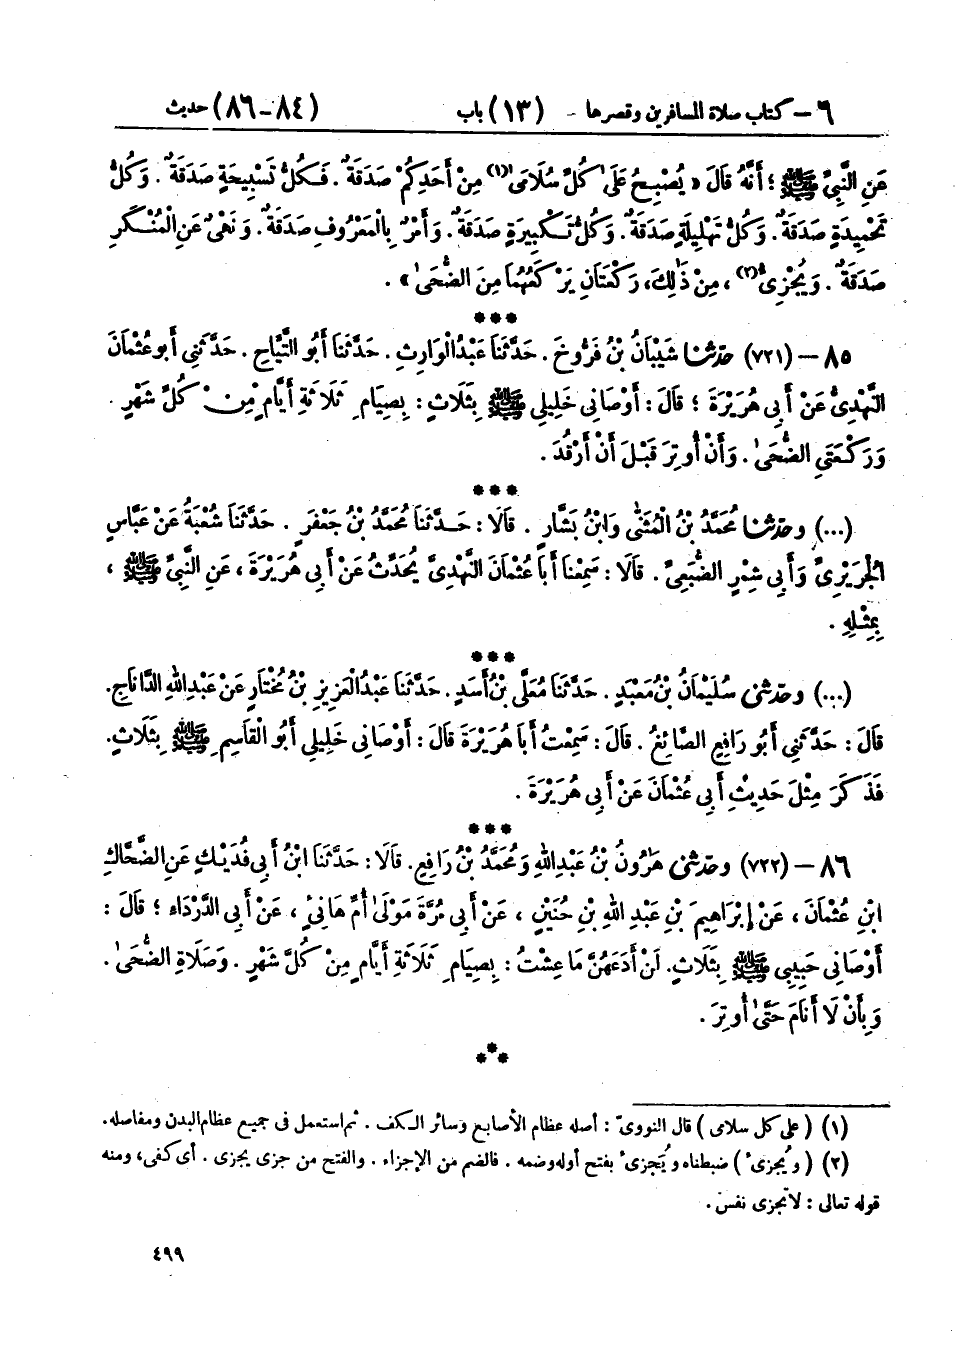 ٦ – كتاب صلاة المسافرين وقصرها – (١٣) باب (٨٤-٨٦) حديث
عَنِ النَّبِيِّ ﷺ ؛ أَنَّهُ قَالَ « يُصْبِحُ عَلَى كُلِّ سُلَامَى(١) مِنْ أَحَدِكُمْ صَدَقَةٌ . فَكُلُّ تَسْبِيحَةٍ صَدَقَةٌ . وَكُلُّ
تَحْمِيدَةٍ صَدَقَةٌ . وَكُلُّ تَهْلِيلَةٍ صَدَقَةٌ . وَكُلُّ تَكْبِيرَةٍ صَدَقَةٌ . وَأَمْرٌ بِالْمَعْرُوفِ صَدَقَةٌ . وَنَهْيٌ عَنِ الْمُنْكَرِ
صَدَقَةٌ . وَيُجْزِئُ(٢) ، مِنْ ذَٰلِكَ، رَكْعَتَانِ يَرْكَعُهُمَا مِنَ الضُّحَىٰ » .
***
٨٥ – (٧٢١) حدّثنا شَيْبَانُ بْنُ فَرُّوخَ . حَدَّثَنَا عَبْدُ الْوَارِثِ . حَدَّثَنَا أَبُو التَّيَّاحِ . حَدَّثَنِي أَبُو عُثْمَانَ
النَّهْدِيُّ عَنْ أَبِي هُرَيْرَةَ ؛ قَالَ : أَوْصَانِي خَلِيلِي ﷺ بِثَلَاثٍ : بِصِيَامِ ثَلَاثَةِ أَيَّامٍ مِنْ كُلِّ شَهْرٍ .
وَرَكْعَتَيِ الضُّحَىٰ . وَأَنْ أُوتِرَ قَبْلَ أَنْ أَرْقُدَ .
***
(...) وحدّثنا مُحَمَّدُ بْنُ الْمُثَنَّى وَابْنُ بَشَّارٍ . قَالَا : حَدَّثَنَا مُحَمَّدُ بْنُ جَعْفَرٍ . حَدَّثَنَا شُعْبَةُ عَنْ عَبَّاسٍ
الْجُرَيْرِيِّ وَأَبِي شِمْرٍ الضُّبَعِيِّ . قَالَا : سَمِعْنَا أَبَا عُثْمَانَ النَّهْدِيَّ يُحَدِّثُ عَنْ أَبِي هُرَيْرَةَ ، عَنِ النَّبِيِّ ﷺ ،
بِمِثْلِهِ .
***
(...) وحدّثني سُلَيْمَانُ بْنُ مَعْبَدٍ . حَدَّثَنَا مُعَلَّى بْنُ أَسَدٍ . حَدَّثَنَا عَبْدُ الْعَزِيزِ بْنُ مُخْتَارٍ عَنْ عَبْدِ اللهِ الدَّانَاجِ.
قَالَ : حَدَّثَنِي أَبُو رَافِعٍ الصَّائِغُ . قَالَ : سَمِعْتُ أَبَا هُرَيْرَةَ قَالَ : أَوْصَانِي خَلِيلِي أَبُو الْقَاسِمِ ﷺ بِثَلَاثٍ.
فَذَكَرَ مِثْلَ حَدِيثِ أَبِي عُثْمَانَ عَنْ أَبِي هُرَيْرَةَ .
***
٨٦ – (٧٢٢) وحدّثني هَارُونُ بْنُ عَبْدِ اللهِ وَمُحَمَّدُ بْنُ رَافِعٍ. قَالَا : حَدَّثَنَا ابْنُ أَبِي فُدَيْكٍ عَنِ الضَّحَّاكِ
ابْنِ عُثْمَانَ ، عَنْ إِبْرَاهِيمَ بْنِ عَبْدِ اللهِ بْنِ حُنَيْنٍ ، عَنْ أَبِي مُرَّةَ مَوْلَىٰ أُمِّ هَانِئٍ ، عَنْ أَبِي الدَّرْدَاءِ ؛ قَالَ :
أَوْصَانِي حَبِيبِي ﷺ بِثَلَاثٍ. لَنْ أَدَعَهُنَّ مَا عِشْتُ : بِصِيَامِ ثَلَاثَةِ أَيَّامٍ مِنْ كُلِّ شَهْرٍ . وَصَلَاةِ الضُّحَىٰ .
وَبِأَنْ لَا أَنَامَ حَتَّىٰ أُوتِرَ .
***
(١) ( على كل سلامى ) قال النوويّ : أصله عظام الأصابع وسائر الكف . ثم استعمل فى جميع عظام البدن ومفاصله.
(٢) ( ويُجزى ) ضبطناه ويُجزىُ بفتح أوله وضمه . فالضم من الإجزاء . والفتح من جزى يجزى . أى كفى، ومنه
قوله تعالى : لا تجزى نفس .
٤٩٩